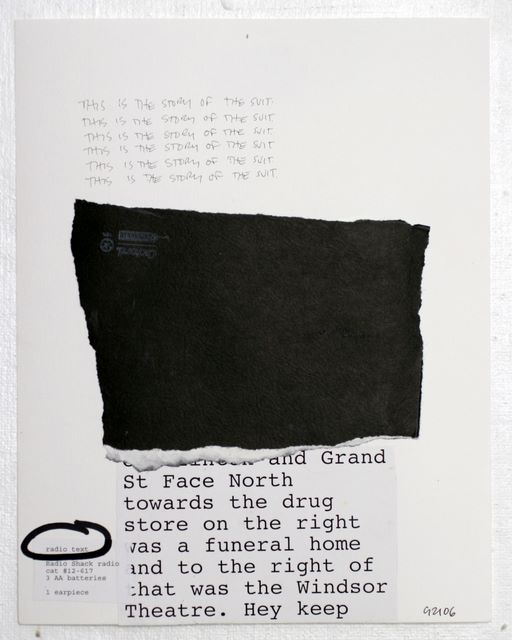 THIS IS THE STORY OF THE SUIT.
THIS IS THE STORY OF THE SUIT
THIS IS THE STORY OF THE SUIT.
THIS IS THE STORY OF THE SUIT
THIS IS THE STORY OF THE SUIT
THIS IS THE STORY OF THE SUIT.
and Grand
St Face North
towards the drug
store on the right
was a funeral home
and to the right of
that was the Windsor
Theatre. Hey keep
radio text
Radio Shack radio
cat #12-617
3 AA batteries
1 earpiece